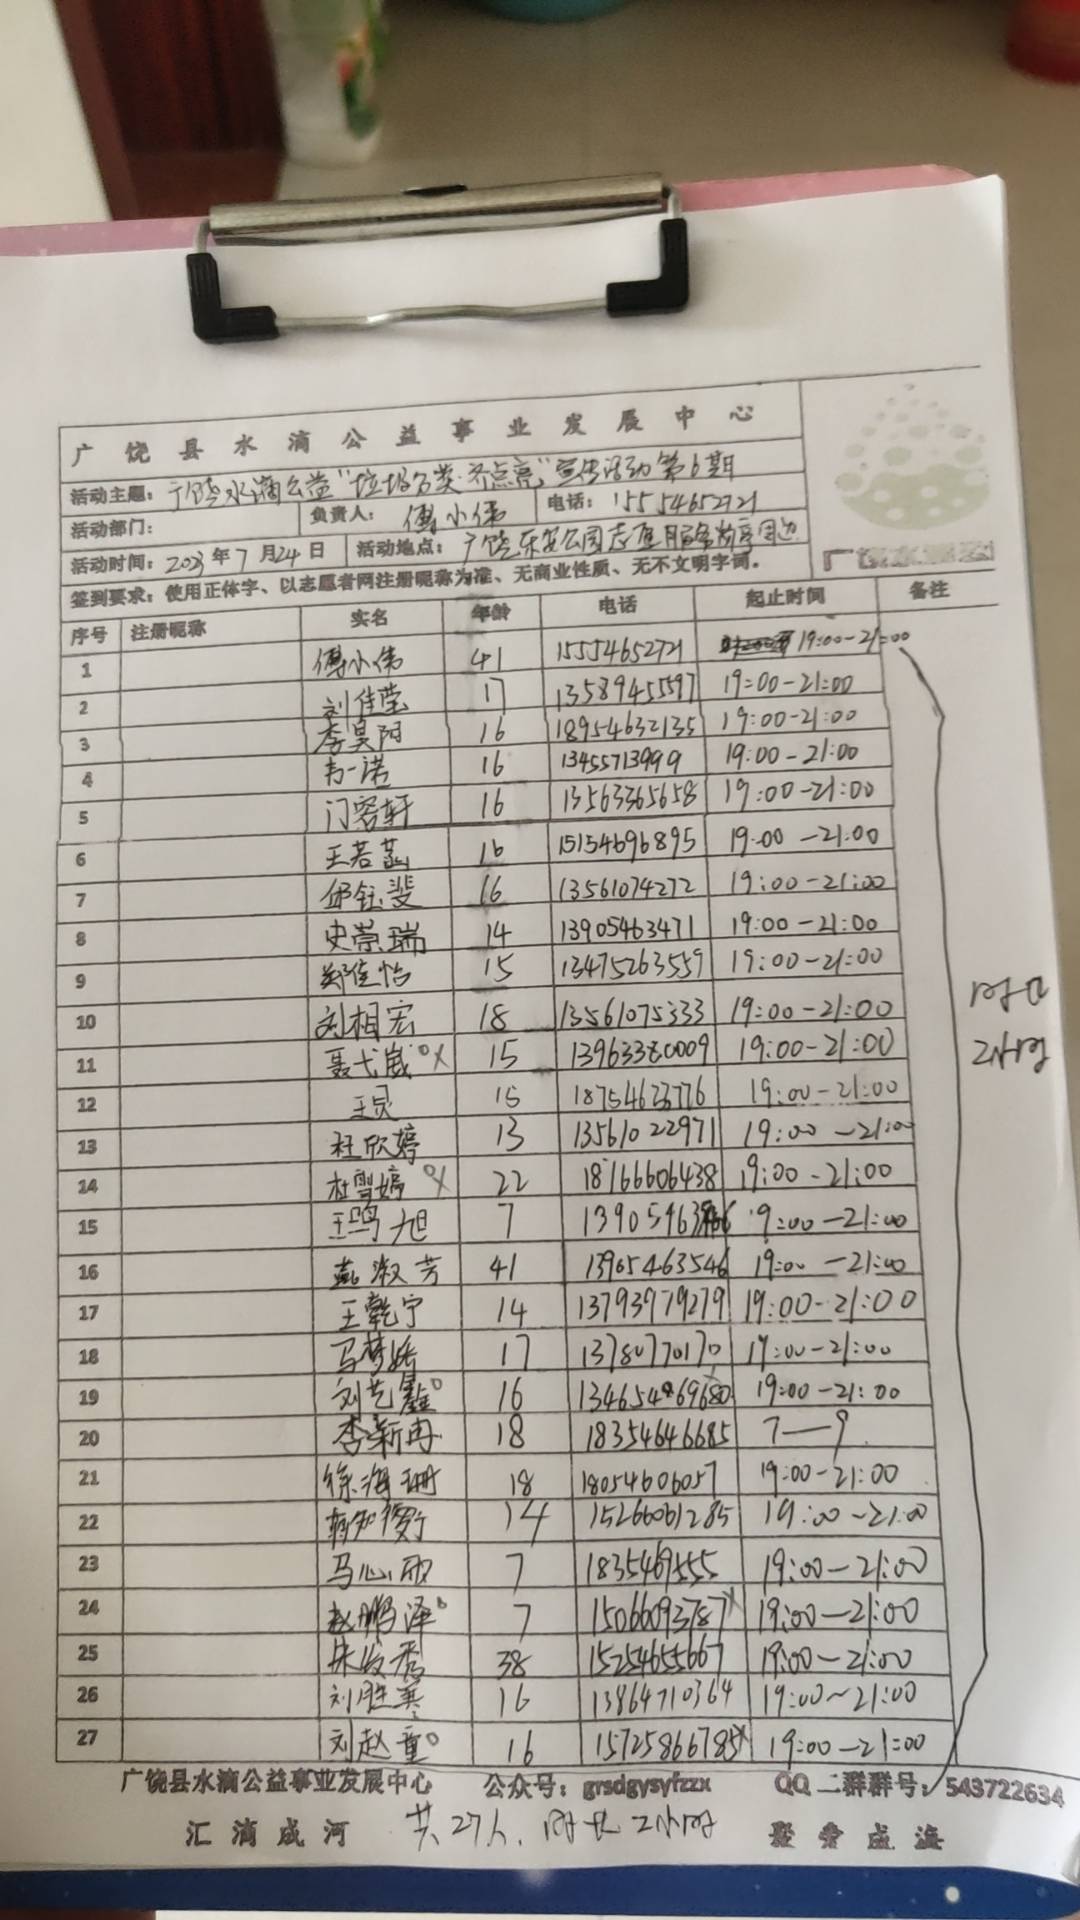 广饶县水滴公益事业发展中心
活动主题：广饶水滴公益"垃圾分类·齐点亮"宣传活动第6期
活动部门： 负责人：傅小伟 电话：15554652721
活动时间：2023年7月24日 活动地点：广饶乐安公园志愿服务岗亭周边
签到要求：使用正体字、以志愿者网注册昵称为准、无商业性质、无不文明字词。
序号 注册昵称 实名 年龄 电话 起止时间 备注
1 傅小伟 41 15554652721 19:00-21:00
2 刘佳莹 17 13589455597 19:00-21:00
3 李昊阳 16 18954632135 19:00-21:00
4 韦一诺 16 13455713999 19:00-21:00
5 门容轩 16 13563365658 19:00-21:00
6 王若菡 16 15154696895 19:00-21:00
7 邱钰斐 16 13561074272 19:00-21:00
8 史崇瑞 14 13905463471 19:00-21:00
9 郑佳怡 15 13475263559 19:00-21:00
10 刘相宏 18 13561075333 19:00-21:00
11 聂弋崴 15 13963380009 19:00-21:00
12 王灵 15 18754623776 19:00-21:00
13 杜欣婷 13 13561022971 19:00-21:00
14 杜雪婷 22 18766606438 19:00-21:00
15 王鸣旭 7 19:00-21:00
16 燕淑芳 41 13905463546 19:00-21:00
17 王乾宁 14 13793979279 19:00-21:00
18 马梦娇 17 13780770170 19:00-21:00
19 刘艺鑫 16 19:00-21:00
20 李新冉 18 18354646685 7—9
21 徐海珊 18 18054606057 19:00-21:00
22 14 15266061285 19:00-21:00
23 马心雨 7 1835469555 19:00-21:00
24 赵鹏泽 7 15066093787 19:00-21:00
25 朱俊秀 38 15254655667 19:00-21:00
26 刘胜英 16 13864710364 19:00~21:00
27 刘赵童 16 15725866785 19:00-21:00
时长
2小时
广饶县水滴公益事业发展中心 公众号：grsdgysyfzzx QQ二群群号：543722634
汇滴成河 共27人，时长2小时 聚爱成海